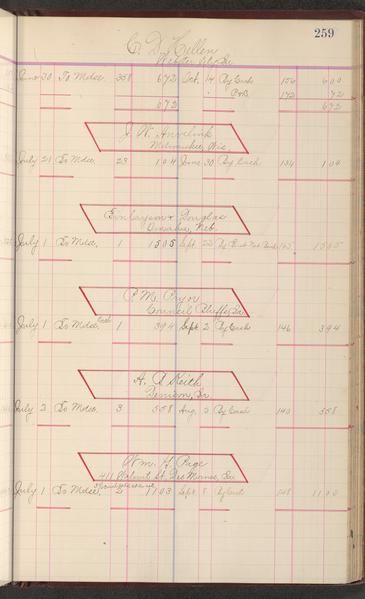 259
C. D. Cullen
June 30 To Mdse 358 6 72 Oct. 14 By Cash 156 6 00
" P&L 172 72
6 72 6 72
J. W.
Milwaukee, Wis.
July 21 To Mdse. 23 1 04 June 30 By Cash 134 1 04
Finlayson & Douglas
Omaha, Neb.
July 1 To Mdse. 1 15 05 Sept. 22 By 15 05
P. M. Pryor
Council Bluffs, Ia
July 1 To Mdse. Cash 1 3 94 Sept 2 By Cash 146 3 94
A. A. Keith
Denison, Ia
July 2 To Mdse. 3 5 58 Aug. 2 By Cash 140 5 58
Wm. H. Page
411 Walnut St. Des Moines, Ia
July 1 To Mdse. 2 11 03 Sept 8 By Cash 148